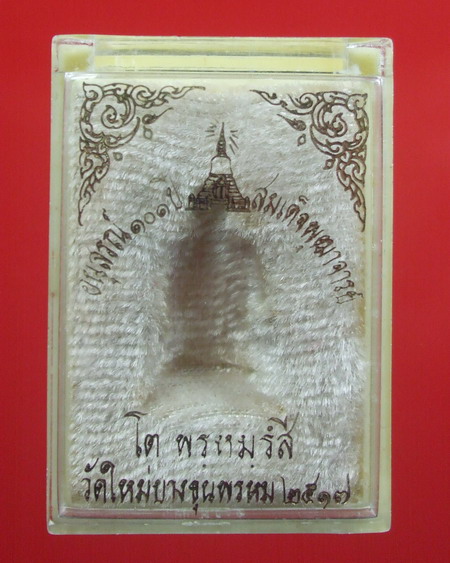 อนุสรณ์ ๑๐๑ ปี สมเด็จพุฒาจารย์
โต พรหมรํสี
วัดใหม่บางขุนพรหม ๒๕๑๗